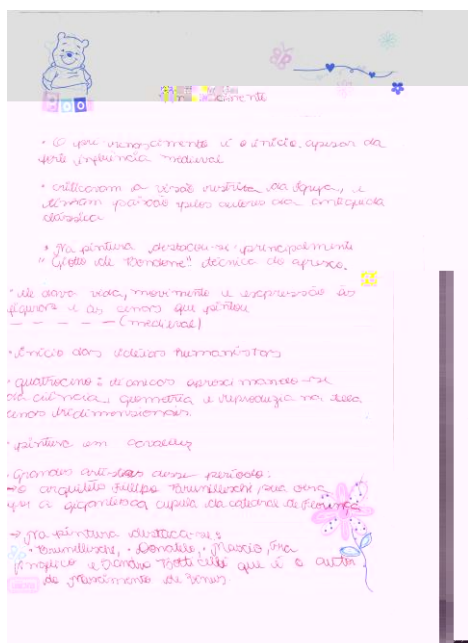 POO
• O pré renascimento é o início, apesar da
forte influência medieval
• criticavam a visão restrita da Igreja, e
tinham paixão pelos autores da antiguida
clássica
• Na pintura destacou-se principalmente
"Giotto de Bondone" técnica do afresco.
• ele dava vida, movimento e expressão às
figuras e às cenas que pintou
- - - - - (medieval)
• início das ideias humanistas
• quattrocento: técnicas aproximando-se
da ciência, geometria e reproduzia na tela
cenas tridimensionais.
• pintura em cavalete
• Grandes artistas desse período:
→ o arquiteto Fellipo Brunellesche, sua obra
foi a gigantesca cupula da catedral de Florença
→ Na pintura destaca-se:
• Brunellesche, • Donatello, • Mascio, Fra
Angelico e Sandro Botticelli que é o autor
do Nascimento de Vênus.